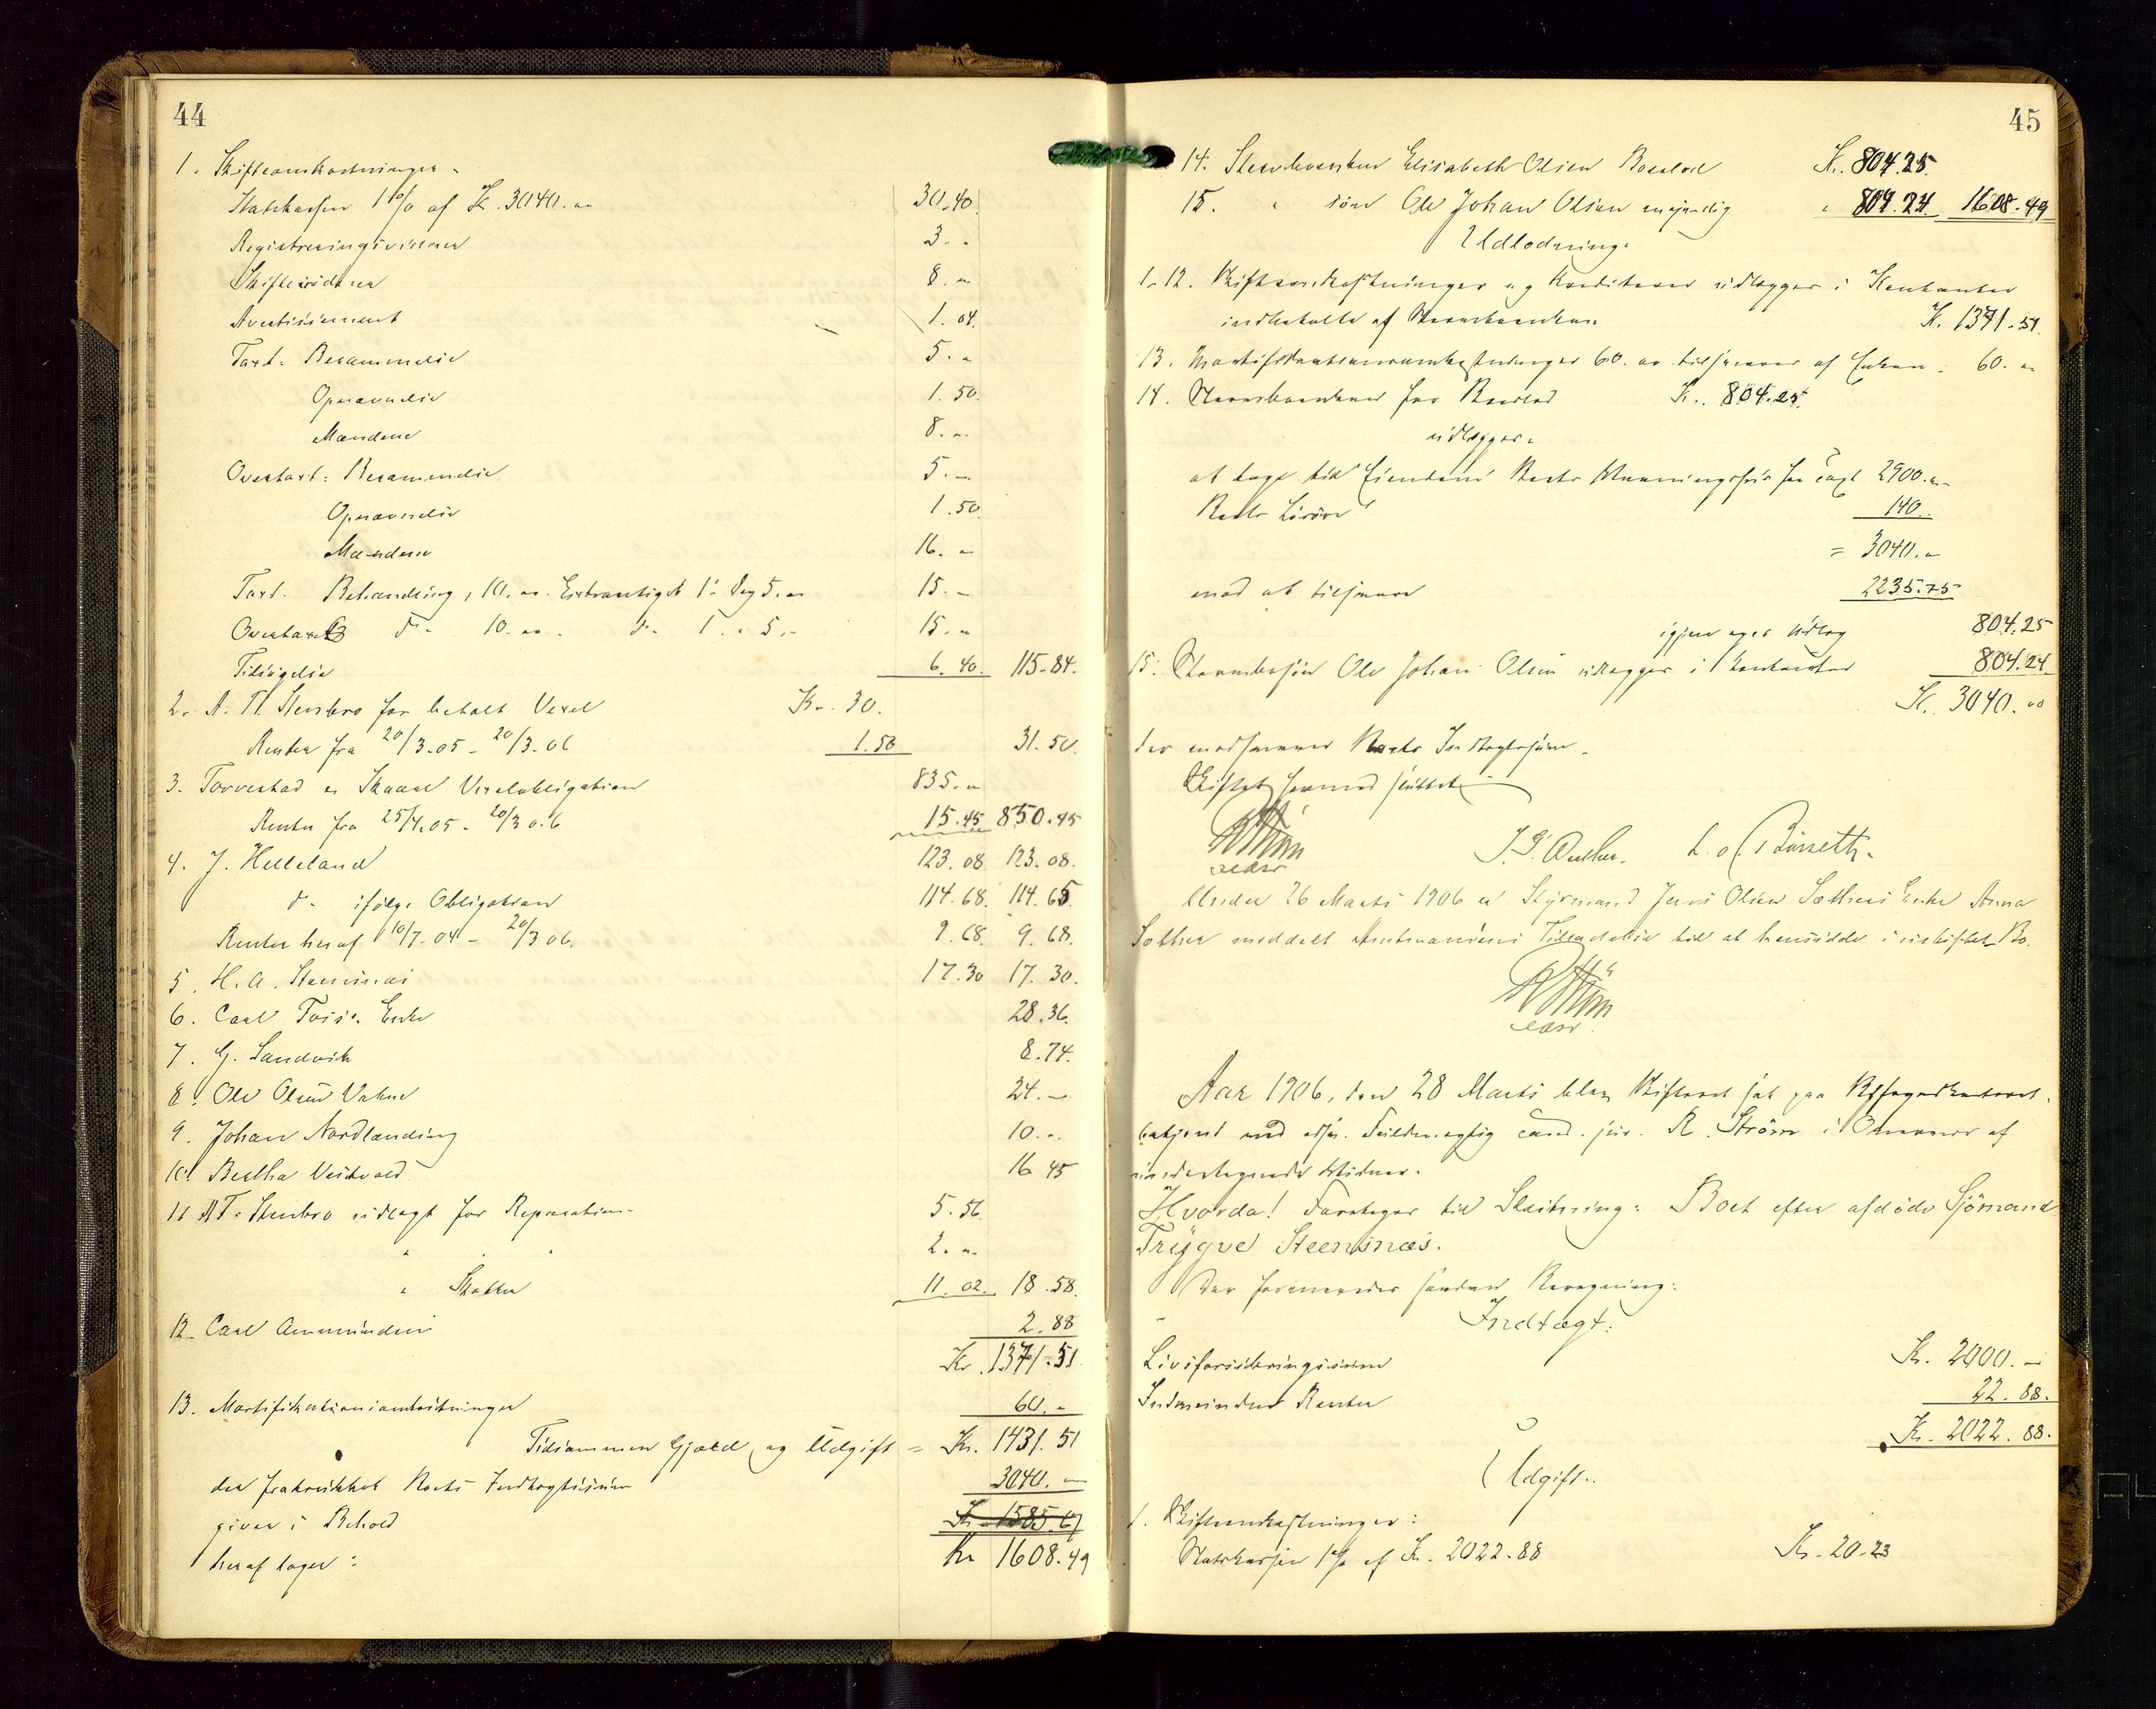 44
1. Skifteomkostninger.
Statskassen 1 % af Kr. 3040.00 30.40
Registreringsvidner 3. "
Skiftevidner 8. "
Avertissement 1.04.
Taxt: Berammelse 5. "
Opnævnelse 1.50.
Mændene 8. "
Overtaxt: Berammelse 5. "
Opnævnelse 1.50.
Mændene 16. "
Taxt. Behandling, 10.00. Extraudgift 1 Dag 5.00 15. "
Overtaxt do 10.00. do 1 " 5. " 15. "
Tilsigelse 6.40. 115.84.
2. A. T. Stensbro for betalt Vexel Kr. 30.
Renter fra 20/3-05 - 20/3-06 1.50 31.50.
3. Torvestad & Skaare Vexelobligation 835. "
Renter fra 25/4.05 - 20/3 0.6 15.45 850.45
4. J. Helleland 123.08. 123.08.
do ifølge Obligation 114.68. 114.68.
Renter heraf 10/7-04 - 20/3 06. 9.68. 9.68.
5. H. A. Steensnæs 17.30 17.30.
6. Carl Enke 28.36.
7. G. Sandvik 8.74.
8. Ole Olsen Vahne 24. "
9. Johan Nordlænding 10. "
10. Bertha Vestvold 16 45
11 A T. Stensbro udlagt for Reparation 5.56.
" " " 2. "
" Skatter 11.02. 18.58.
12. Carl Ammundsen 2.88
Kr. 1371.51
13. Mortifikationsomkostninger 60. "
Tilsammen Gjæld og Udgift = Kr. 1431.51
der fratrukket Boets Indtægtssum 3040. "
giver i Behold Kr. 1585.67
heraf tager: Kr 1608.49
45
14. Stervboenken Elisabeth Olsen Boeslod Kr. 804.25.
15. " søn Ole Johan Olsen umyndig " 804.24 1608.49
Udlodning.
1-12. Skifteomkostninger og Kreditorer udlægges i Kontanter
indbetalte af Stervboenken. Kr. 1371.51.
13. Mortifikationsomkostninger 60.00 tilsvares af Enken. 60. "
14. Stervboenken for Boeslod Kr. 804.25.
udlægges.
at tage til Eiendom Boets for taxt 2900. "
Boets Løsøre 140. "
= 3040. "
mod at tilsvare 2235.75
igjen eget Udlæg 804.25
15. Stervbosøn Ole Johan Olsen udlægges i Kontanter 804.24
Kr. 3040.00
der modsvarer Boets Indtægtssum.
Skiftet hermed sluttet.
R Strøm
edsv
Under 26 Marts 1906 er Styrmand Jens Olsen Sæthers Enke Anna
Sæther meddelt Amtmandens Tilladelse til at hensidde i uskiftet Bo.
R Strøm
edsv.
Aar 1906, den 28 Marts blev Skifteret sat paa Byfogedkontoret,
betjent ved edsv. Fuldmægtig cand. jur. R. Strøm i Overvær af
undertegnede Vidner.
Hvorda! Foretages til Slutning: Boet efter afdøde Sjömand
Trygve Steensnæs.
Der fremlagdes saadan Beregning:
Indtægt:
Livsforsikringssum Kr. 2000. "
Indvundne Renter 22.88.
Kr. 2022.88.
Udgift.
1. Skifteomkostninger:
Statskassen 1 % af Kr. 2022.88 Kr. 20.23